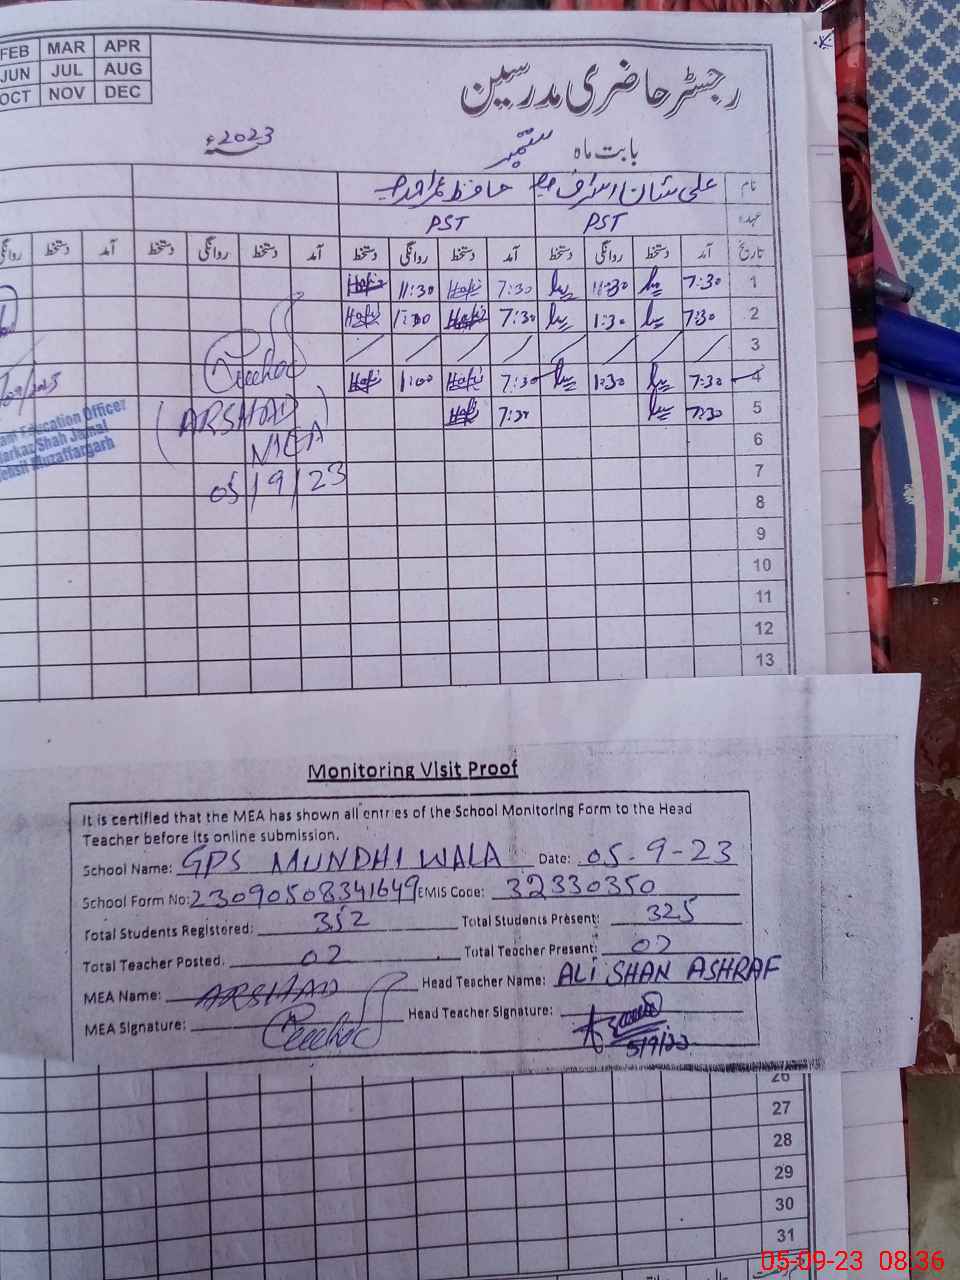 FEB MAR APR
JUN JUL AUG
OCT NOV DEC
رجسٹر حاضری مدرسین
بابت ماہ ستمبر 2023ء
نام علی شان اشرف حافظ
عہدہ PST PST
تاریخ آمد دستخط روانگی دستخط آمد دستخط روانگی دستخط آمد دستخط روانگی دستخط آمد دستخط روانگی
1 7:30 11:30 7:30 Hafiz 11:30 Hafiz
2 7:30 1:30 7:30 Hafiz Hafiz
3
4 7:30 1:30 7:30 Hafiz 1:00 Hafiz
5 7:30 7:30 Hafiz
6
7
8
9
10
11
12
13
(ARSHAD)
MEA
05/9/23
Education Officer
Markaz Shah Jamal
Muzaffargarh
Monitoring Visit Proof
It is certified that the MEA has shown all entries of the School Monitoring Form to the Head
Teacher before its online submission.
School Name: GPS MUNDHI WALA Date: 05-9-23
School Form No: 23090508341649 EMIS Code: 32330350
Total Students Registered: 352 Total Students Present: 325
Total Teacher Posted: 02 Total Teacher Present: 02
MEA Name: ARSHAD Head Teacher Name: ALI SHAN ASHRAF
MEA Signature: Head Teacher Signature:
5/9/23
26
27
28
29
30
31
05-09-23 08:36